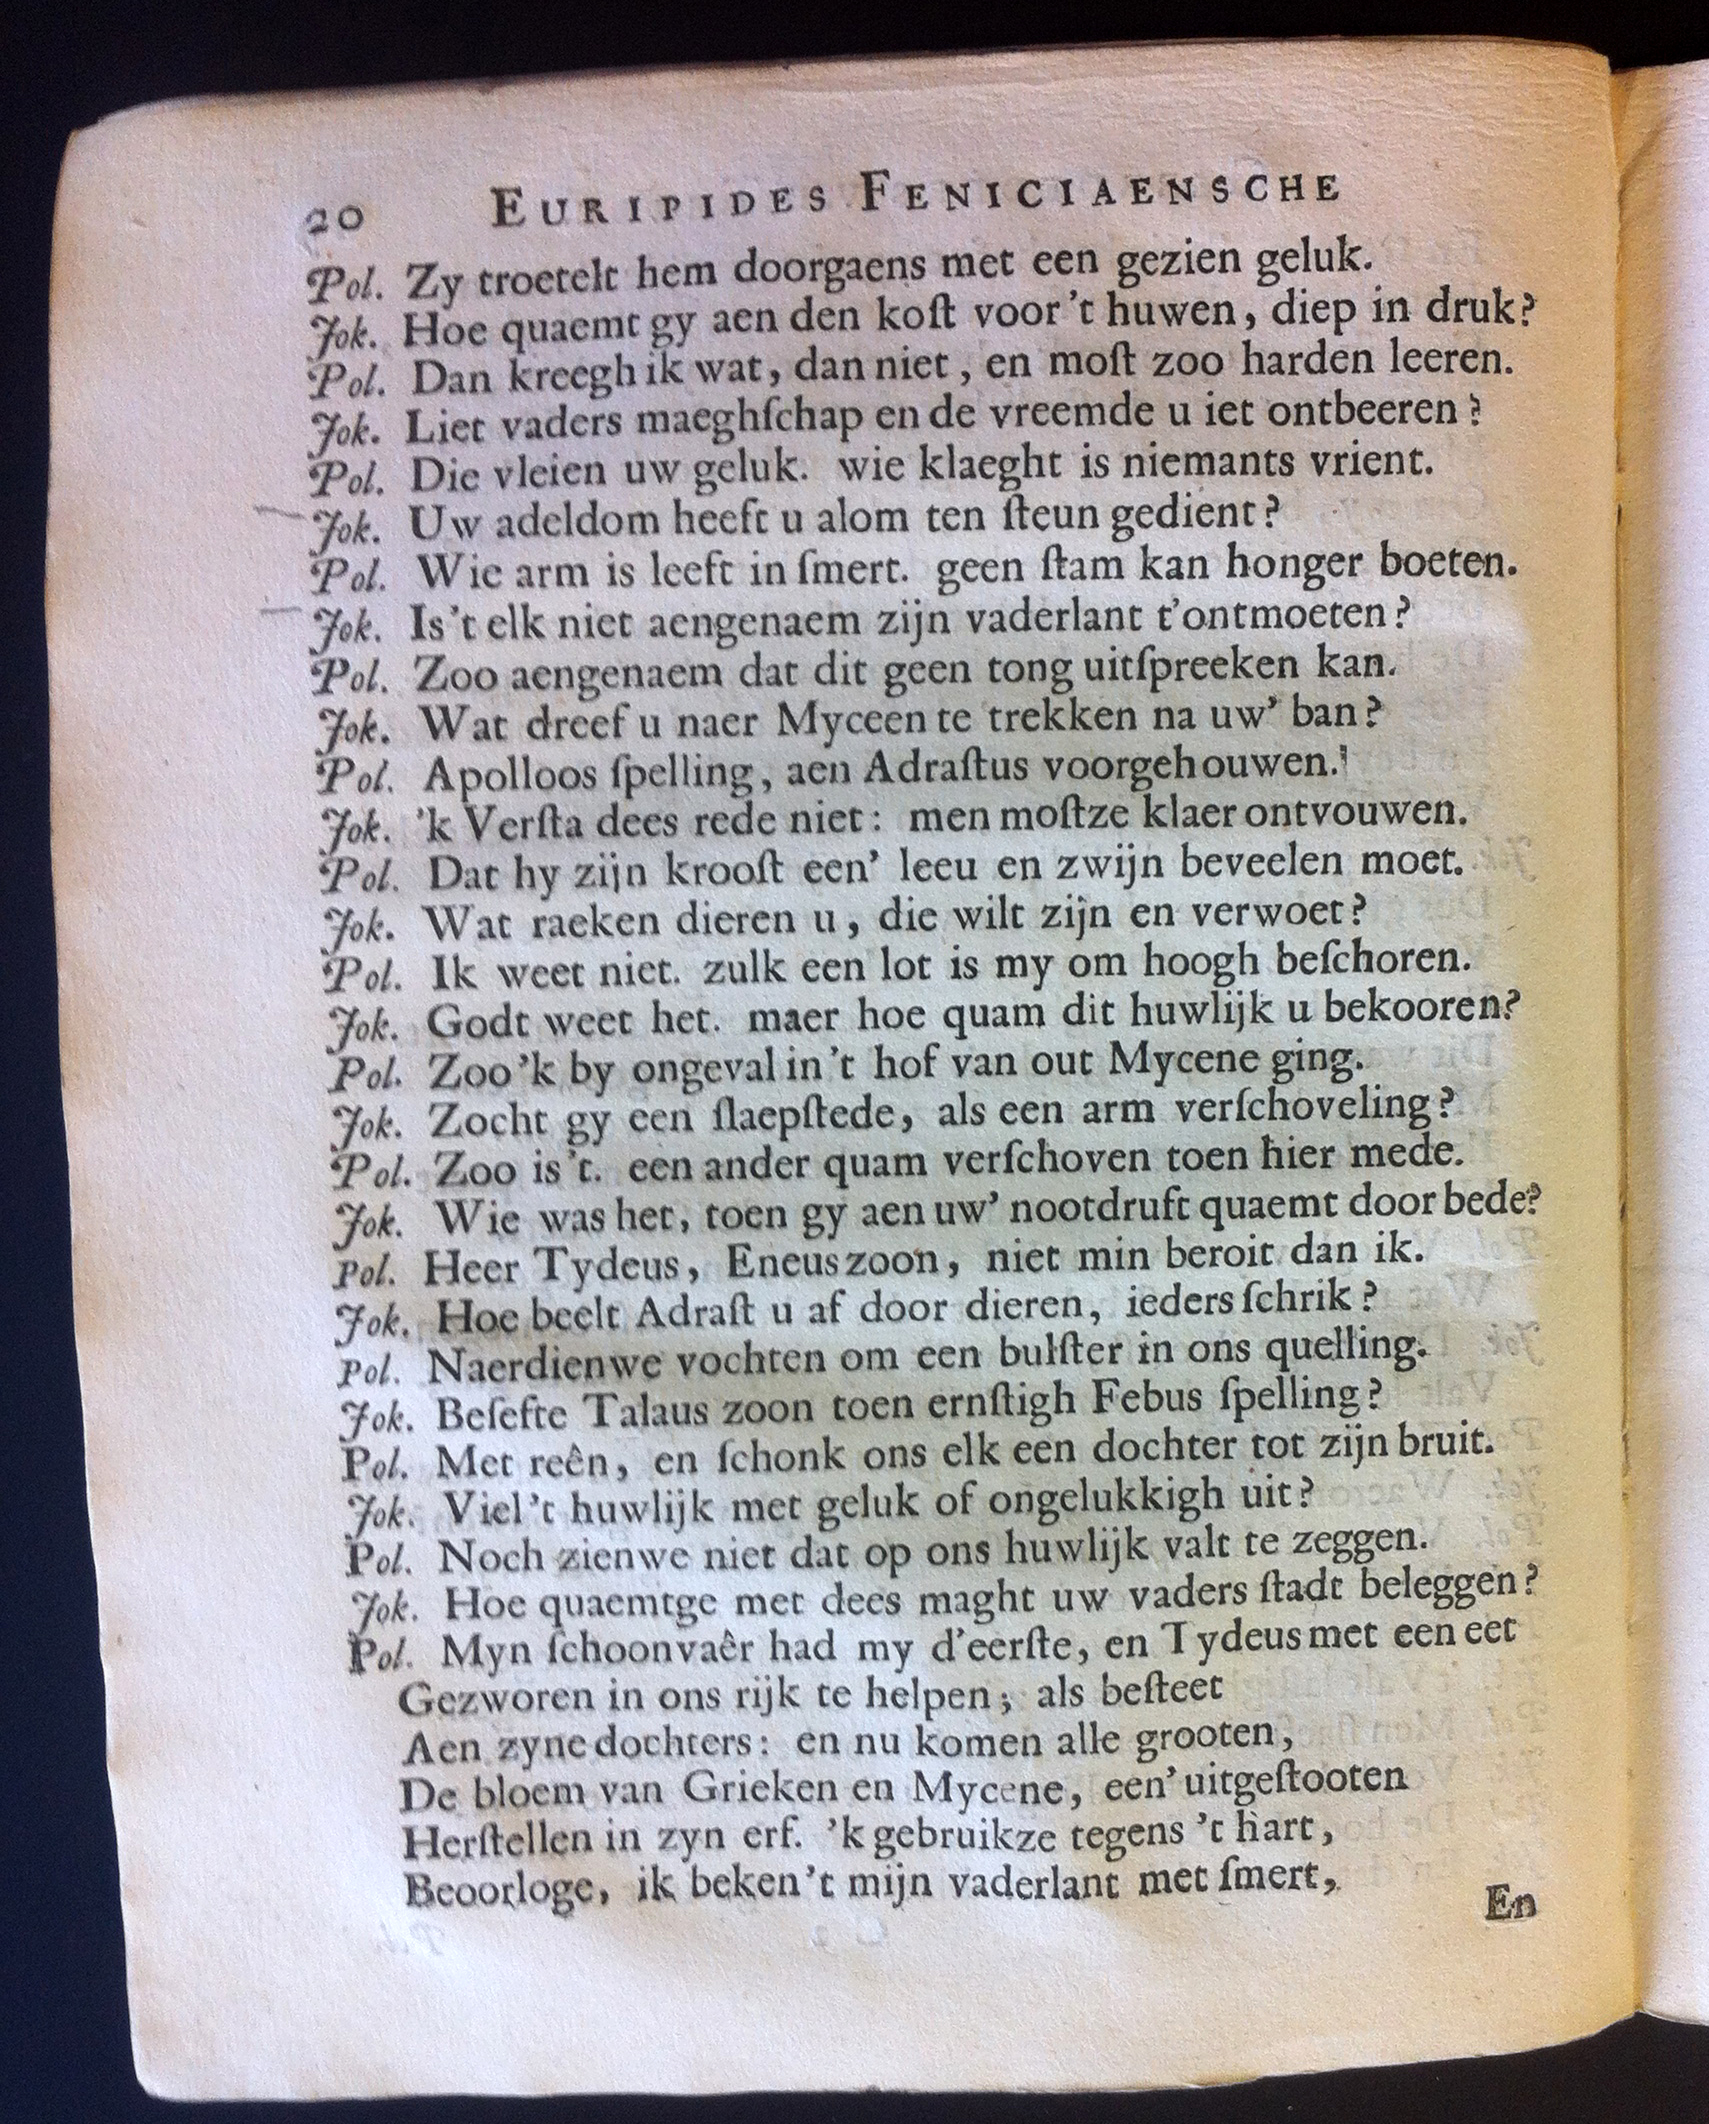 20 EURIPIDES FENICIAENSCHE
Pol. Zy troetelt hem doorgaens met een gezien geluk.
Jok. Hoe quaemt gy aen den koſt voor 't huwen, diep in druk?
Pol. Dan kreegh ik wat, dan niet, en moſt zoo harden leeren.
Jok. Liet vaders maeghſchap en de vreemde u iet ontbeeren?
Pol. Die vleien uw geluk. wie klaeght is niemants vrient.
Jok. Uw adeldom heeft u alom ten ſteun gedient?
Pol. Wie arm is leeft in ſmert. geen ſtam kan honger boeten.
Jok. Is 't elk niet aengenaem zijn vaderlant t'ontmoeten?
Pol. Zoo aengenaem dat dit geen tong uitſpreeken kan.
Jok. Wat dreef u naer Myceen te trekken na uw' ban?
Pol. Apolloos ſpelling, aen Adraſtus voorgehouwen.
Jok. 'k Verſta dees rede niet: men moſtze klaer ontvouwen.
Pol. Dat hy zijn krooſt een' leeu en zwijn beveelen moet.
Jok. Wat raeken dieren u, die wilt zijn en verwoet?
Pol. Ik weet niet. zulk een lot is my om hoogh beſchoren.
Jok. Godt weet het. maer hoe quam dit huwlijk u bekooren?
Pol. Zoo 'k by ongeval in 't hof van out Mycene ging.
Jok. Zocht gy een ſlaepſtede, als een arm verſchoveling?
Pol. Zoo is 't. een ander quam verſchoven toen hier mede.
Jok. Wie was het, toen gy aen uw' nootdruft quaemt door bede?
Pol. Heer Tydeus, Eneus zoon, niet min beroit dan ik.
Jok. Hoe beelt Adraſt u af door dieren, ieders ſchrik?
Pol. Naerdienwe vochten om een bulſter in ons quelling.
Jok. Beſefte Talaus zoon toen ernſtigh Febus ſpelling?
Pol. Met reên, en ſchonk ons elk een dochter tot zijn bruit.
Jok. Viel 't huwlijk met geluk of ongelukkigh uit?
Pol. Noch zienwe niet dat op ons huwlijk valt te zeggen.
Jok. Hoe quaemtge met dees maght uw vaders ſtadt beleggen?
Pol. Myn ſchoonvaêr had my d'eerſte, en Tydeus met een eet
Gezworen in ons rijk te helpen; als beſteet
Aen zyne dochters: en nu komen alle grooten,
De bloem van Grieken en Mycene, een' uitgeſtooten
Herſtellen in zyn erf. 'k gebruikze tegens 't hart,
Beoorloge, ik beken 't mijn vaderlant met ſmert,
En